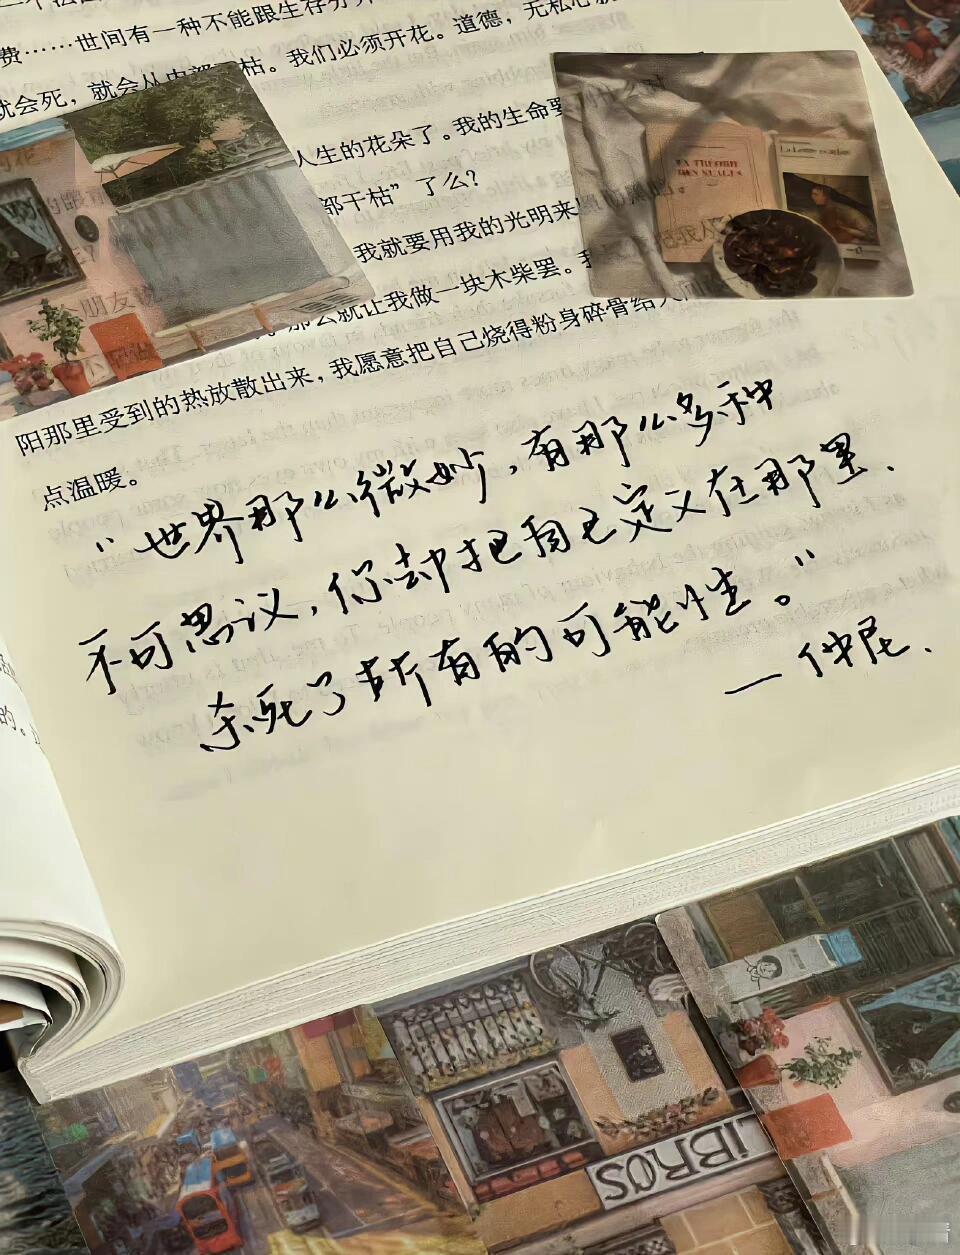 费……世间有一种不能跟生存分
就会死，就会从内部干枯。我们必须开花。道德，无私心就
人生的花朵了。我的生命要
部干枯”了么？
我就要用我的光明来
那么就让我做一块木柴罢。我
阳那里受到的热放散出来，我愿意把自己烧得粉身碎骨给人间
点温暖。
“世界那么微妙，有那么多种
不可思议，你却把自己定义在那里.
杀死了所有的可能性。”
—仲尼.
的。
LIBROS